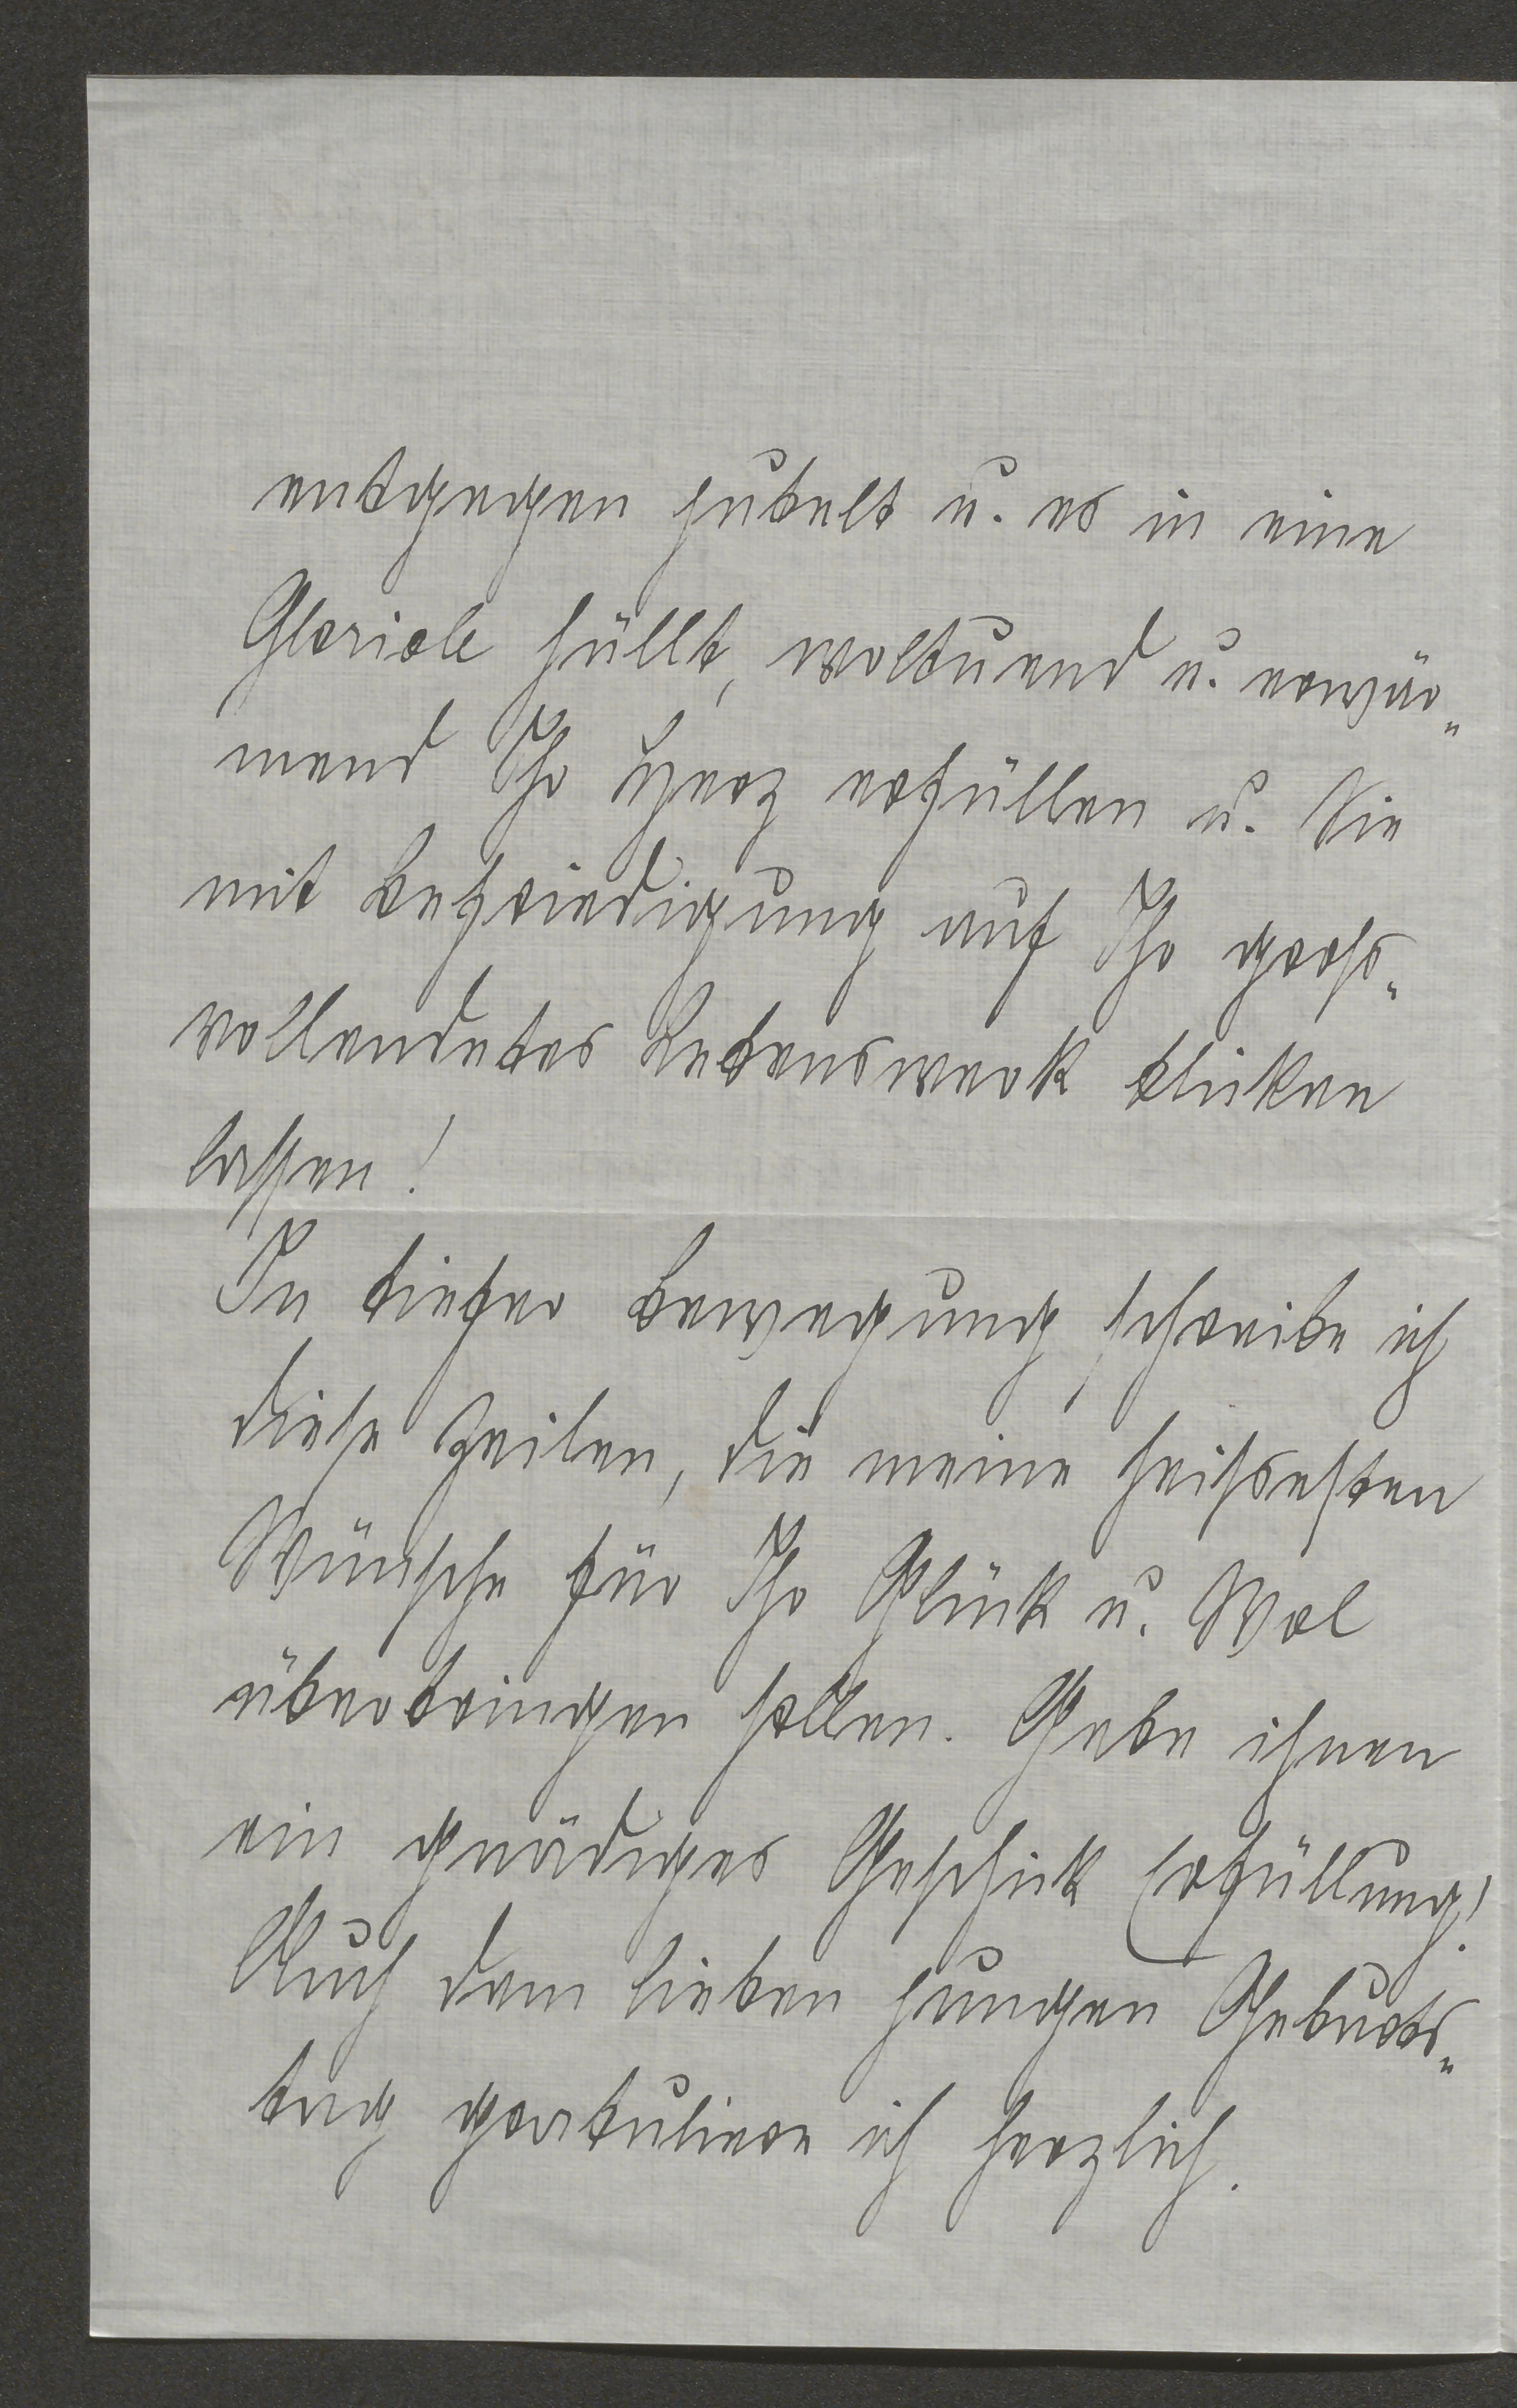 entgegen jubelt u. es in eine
Gloriole hüllt, woltuend u. erwär„
mend Ihr Herz erfüllen u. Sie
mit Befriedigung auf Ihr gross„
vollendetes Lebenswerk blicken
lassen!
In tiefer Bewegung schreibe ich
diese Zeilen, die meine heissesten
Wünsche für Ihr Glück u. Wol
überbringen sollen. Gebe ihnen
ein gnädiges Geschick Erfüllung!
Auch dem lieben jungen Geburts„
tag gratuliere ich herzlich.